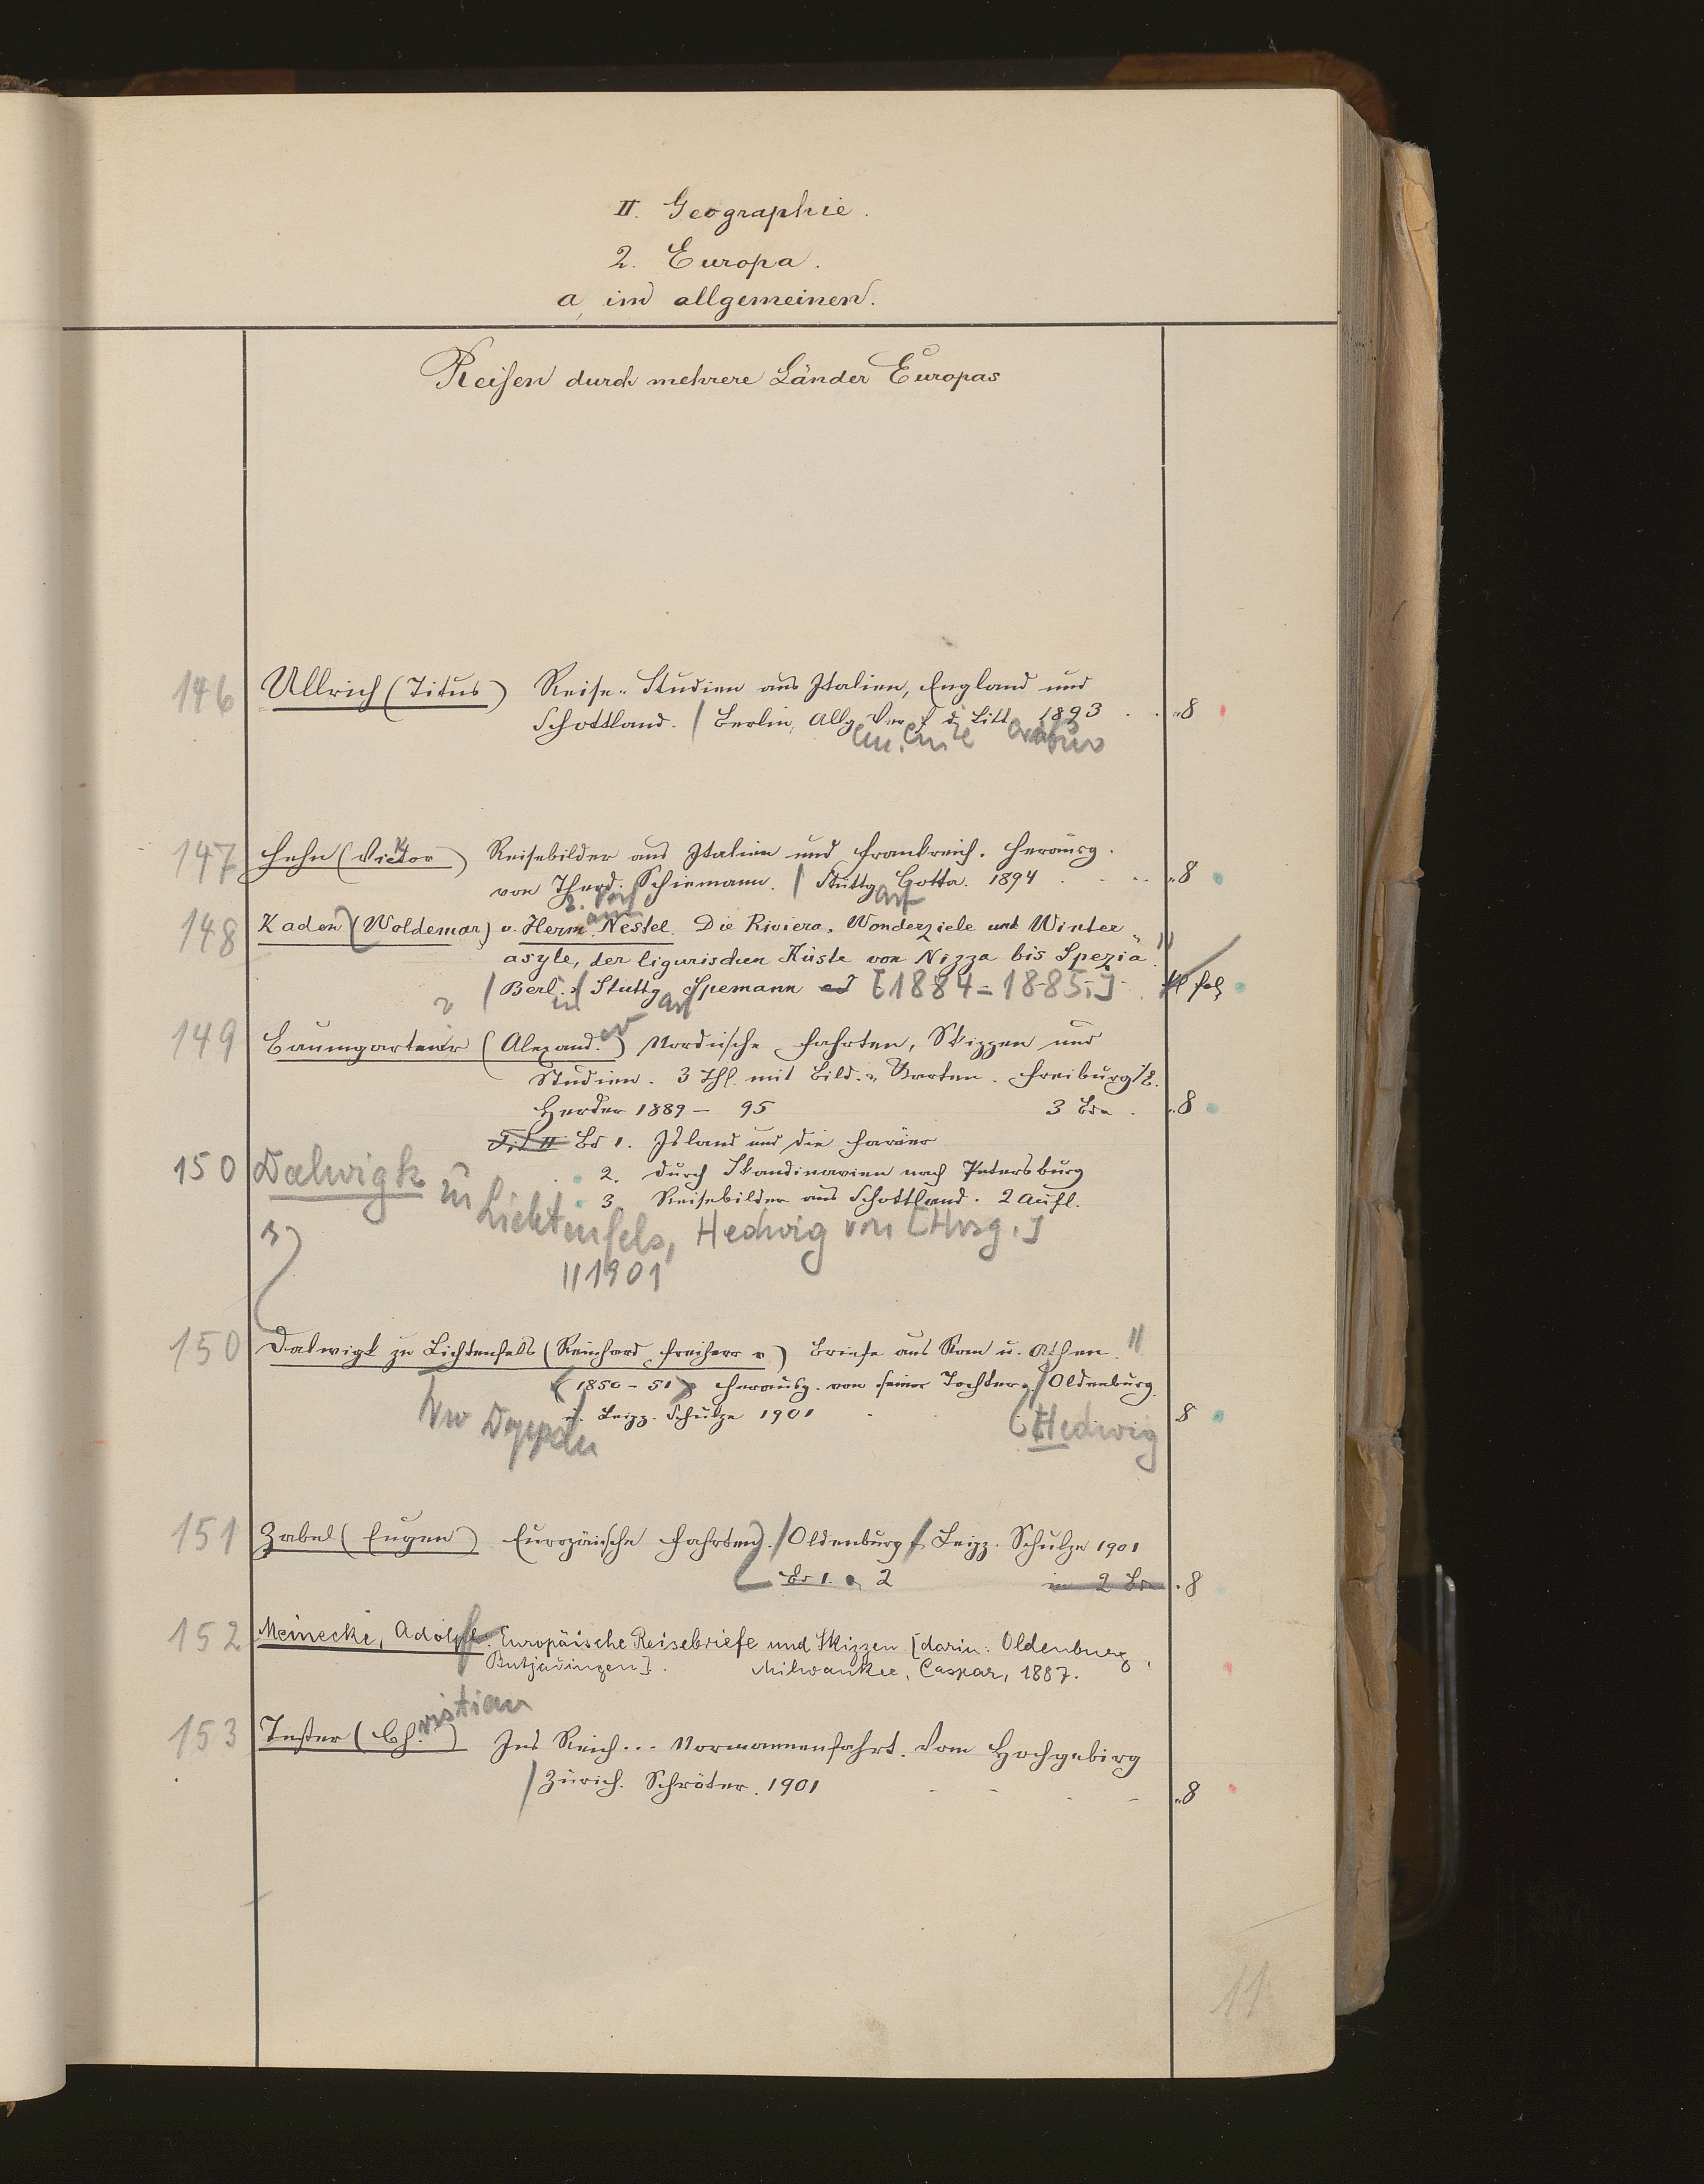 II. Geographie.
2. Europa.
a, im allgemeinen.
Reisen durch mehrere Länder Europas
146 Ullrich (Titus) Reise-Studien aus Italien, England und
Schottland. / Berlin, Allg Ver f d Litt 1893 . . "8
147 Hehn (Victor) Reisebilder aus Italien und Frankreich. Herausg.
von Theod. Schiemann. / Stuttgart Cotta. 1894 . . . "8
148 Kaden (Woldemar) u. Hermann Nestel. Die Riviera. Wanderziele und Winter-
asyle, der ligurischen Küste von Nizza bis Spezia.
/ Berl. Stuttgart Spemann [1884-1885.] fol
149 Baumgartner (Alexander) Nordische Fahrten, Skizzen und
Studien. 3 Thl. mit Bild. u. Karten. Freiburg
Herder 1889 - 95 3 Bde . "8
Bd 1. Island und die Faröer
2. Durch Skandinavien nach Petersburg
3. Reisebilder aus Schottland. 2 Aufl.
150 Dalwigk zu Lichtenfels, Hedwig von [Hrsg.]
1901
150 Dalwigk zu Lichtenfels (Reinhard Freiherr v) Briefe aus Rom u. Athen.
(1850-51) Herausg. von seiner Tochter, / Oldenburg.
u. Leipz. Schulze 1901 . (Hedwig 8
151 Zabel (Eugen) Europäische Fahrten. / Oldenburg Leipz. Schulze 1901
Bd 1. 2 in 2 Bdn . 8
152 Meinecke, Adolf. Europäische Reisebriefe und Skizzen. [darin: Oldenburg,
Butjadingen]. Milwaukee, Caspar, 1887.
153 Tester (Christian) Ins Reich... Normannenfahrt. Vom Hochgebirg
/ Zürich. Schröter. 1901 - - - - "8
11